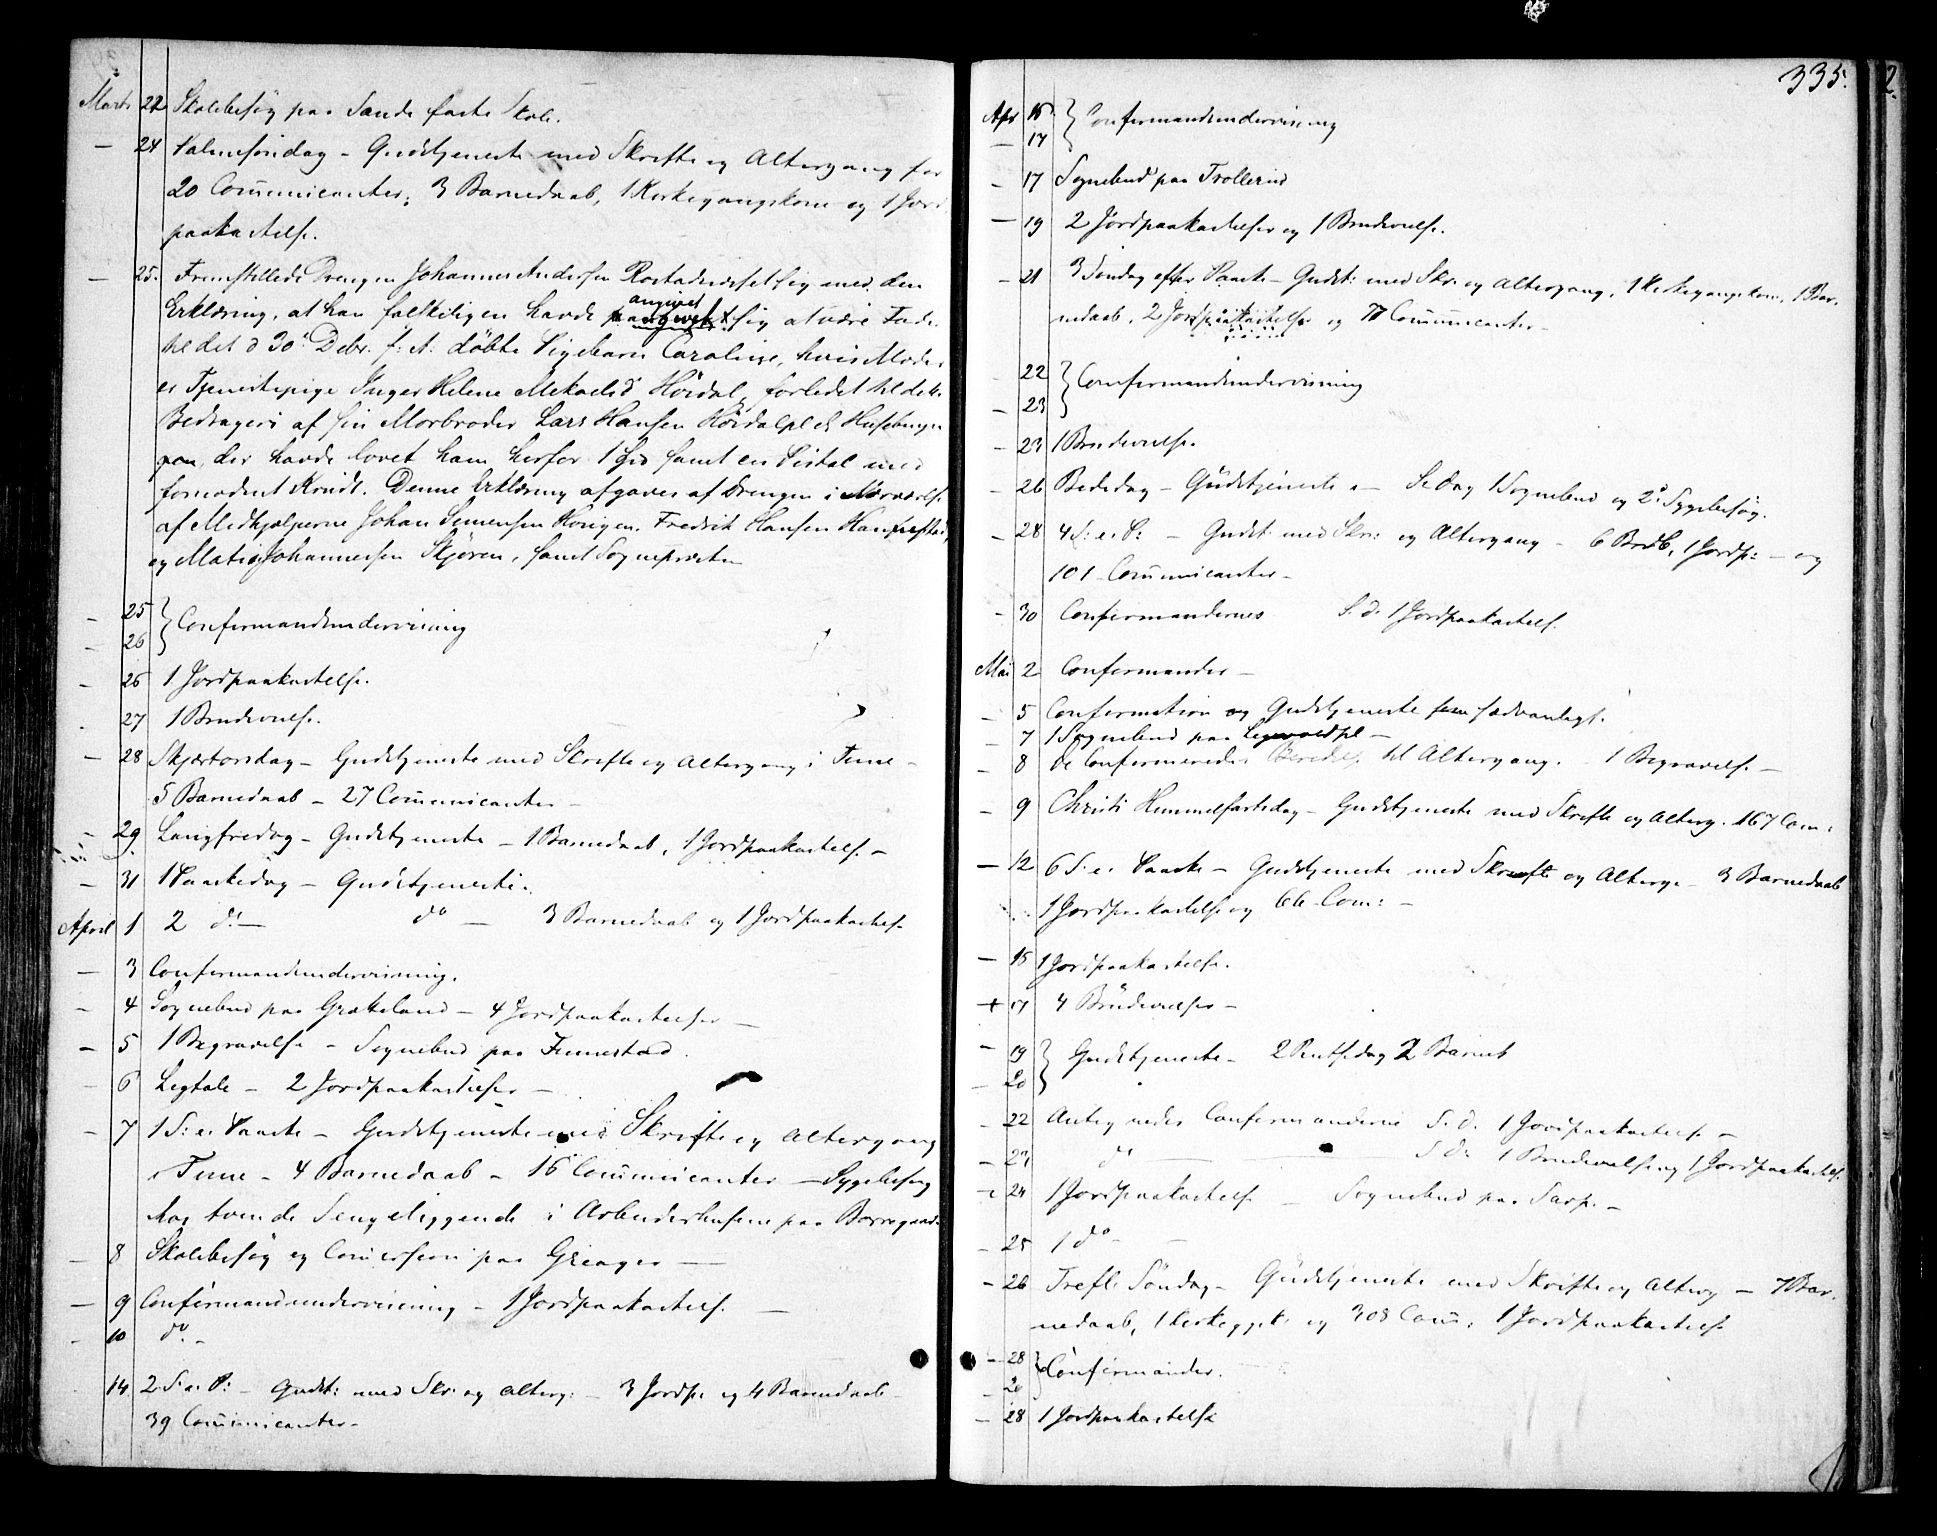 Marts 22 Skolebesög paa Sande faste Skole.
— 24 Palmesöndag – Gudstjeneste med Skrifte og Altergang for
20 Communicanter, 3 Barnedaab, 1 Kirkegangskone og 1 Jord
paakastelse.
— 25. Fremstillede Drengen Johannes Andersen sig med den
Erklæring, at han falskeligen havde angivet sig at være Fader
til det d 30t Decbr. f: A: döbte Pigebarn Caroline, hvis Moder
er Tjenestepige Inger Helene Mekaelsd Höidal, forledet til dette
Bedrageri af sin Morbroder Lars Hansen
der havde lovet ham herfor 1 samt en Pistol med
fornødent Krudt. Denne Erklæring afgaves af Drengen i Nærværelse
af Medhjælperne Johan Simensen Fredrik Hansen
og Johannessen Skjøren, samt Sognepræsten
— 25
— 26 } Confirmandundervisning
— 26 1 Jordpaakastelse.
27 1 Brudevielse.
— 28 Skjærtorsdag – Gudstjeneste med Skrifte og Altergang i Tune –
5 Barnedaab – 27 Communicanter –
— 29 Langfredag – Gudstjeneste – 1 Barnedaab, 1 Jordpaakastelse –
— 31 1 Paaskedag – Gudstjeneste.
April 1 2 do — do — 3 Barnedaab og 1 Jordpaakastelse
— 3 Confirmandundervisning.
— 4 Sognebud paa Grøteland – 4 Jordpaakastelser —
— 5 1 Begravelse – Sognebud paa Tunestad.
— 6 Ligtale – 2 Jordpaakastelser —
— 7 1 S: e: Paaske – Gudstjeneste med Skrifte og Altergang
i Tune – 4 Barnedaab – 16 Communicanter — Sygebesög
hos tvende Sengeliggende i Arbeiderhusene paa Borregaard
— 8 Skolebesög og Commission paa Greager —
— 9 Confirmandundervisning – 1 Jordpaakastelse —
— 10 do –
14 2 S: e: P: – Gudst: med Skr: og Alterg: – 3 Jordp: og 4 Barnedaab –
39 Communicanter –
335.
Apr 16
— 17 } Confirmandundervisning
— 17 Sognebud paa Trollerud
— 19 2 Jordpaakastelser og 1 Brudevielse.
— 21 3 Söndag efter Paaske – Gudst: med Skr: og Altergang, 1 Kirkegangskone, 1 Bar-
nedaab, 2 Jordpaakastelser og 77 Communicanter –
22
— 23 } Confirmandundervisning
— 23 1 Brudevielse.
— 26 Bededag – Gudstjeneste — S. dag 1 Sognebud og 2 Sygebesög.
— 28 4 S: e: P: – Gudst: med Skr: og Altergang – 6 Brdb, 1 Jordp: – og
101 Communicanter –
— 30 Confirmandernes S. d. 1 Jordpaakastelse.
Mai 2 Confirmander –
— 5 Confirmation og Gudstjeneste som sædvanligt.
— 7 1 Sognebud paa –
— 8 De Confirmeredes til Altergang. – 1 Begravelse –
— 9 Christi Himmelfartsdag – Gudstjeneste med Skrifte og Alterg. 167 Com:
— 12 6 S: e: Paaske – Gudstjeneste med Skrifte og Alterg: – 3 Barnedaab
1 Jordpaakastelse og 66 Com: –
— 15 1 Jordpaakastelse.
+ 17 4 Brudevielser –
— 19
— 20 } Gudstjeneste – 2 Pintsedag 2 Barneb
— 22 Antegnedes Confirmanderne S. d. 1 Jordpaakastelse –
— 23 do — S. d: 1 Brudevielse og 1 Jordpaakastelse.
— 24 1 Jordpaakastelse — Sognebud paa Sarp. –
— 25 1 do –
— 26 Trefl: Söndag – Gudstjeneste med Skrifte og Alterg — 7 Bar-
nedaab, 1 Kirkeggk: og 308 Com:, 1 Jordpaakastelse
— 28
— } Confirmander.
— 28 1 Jordpaakastelse